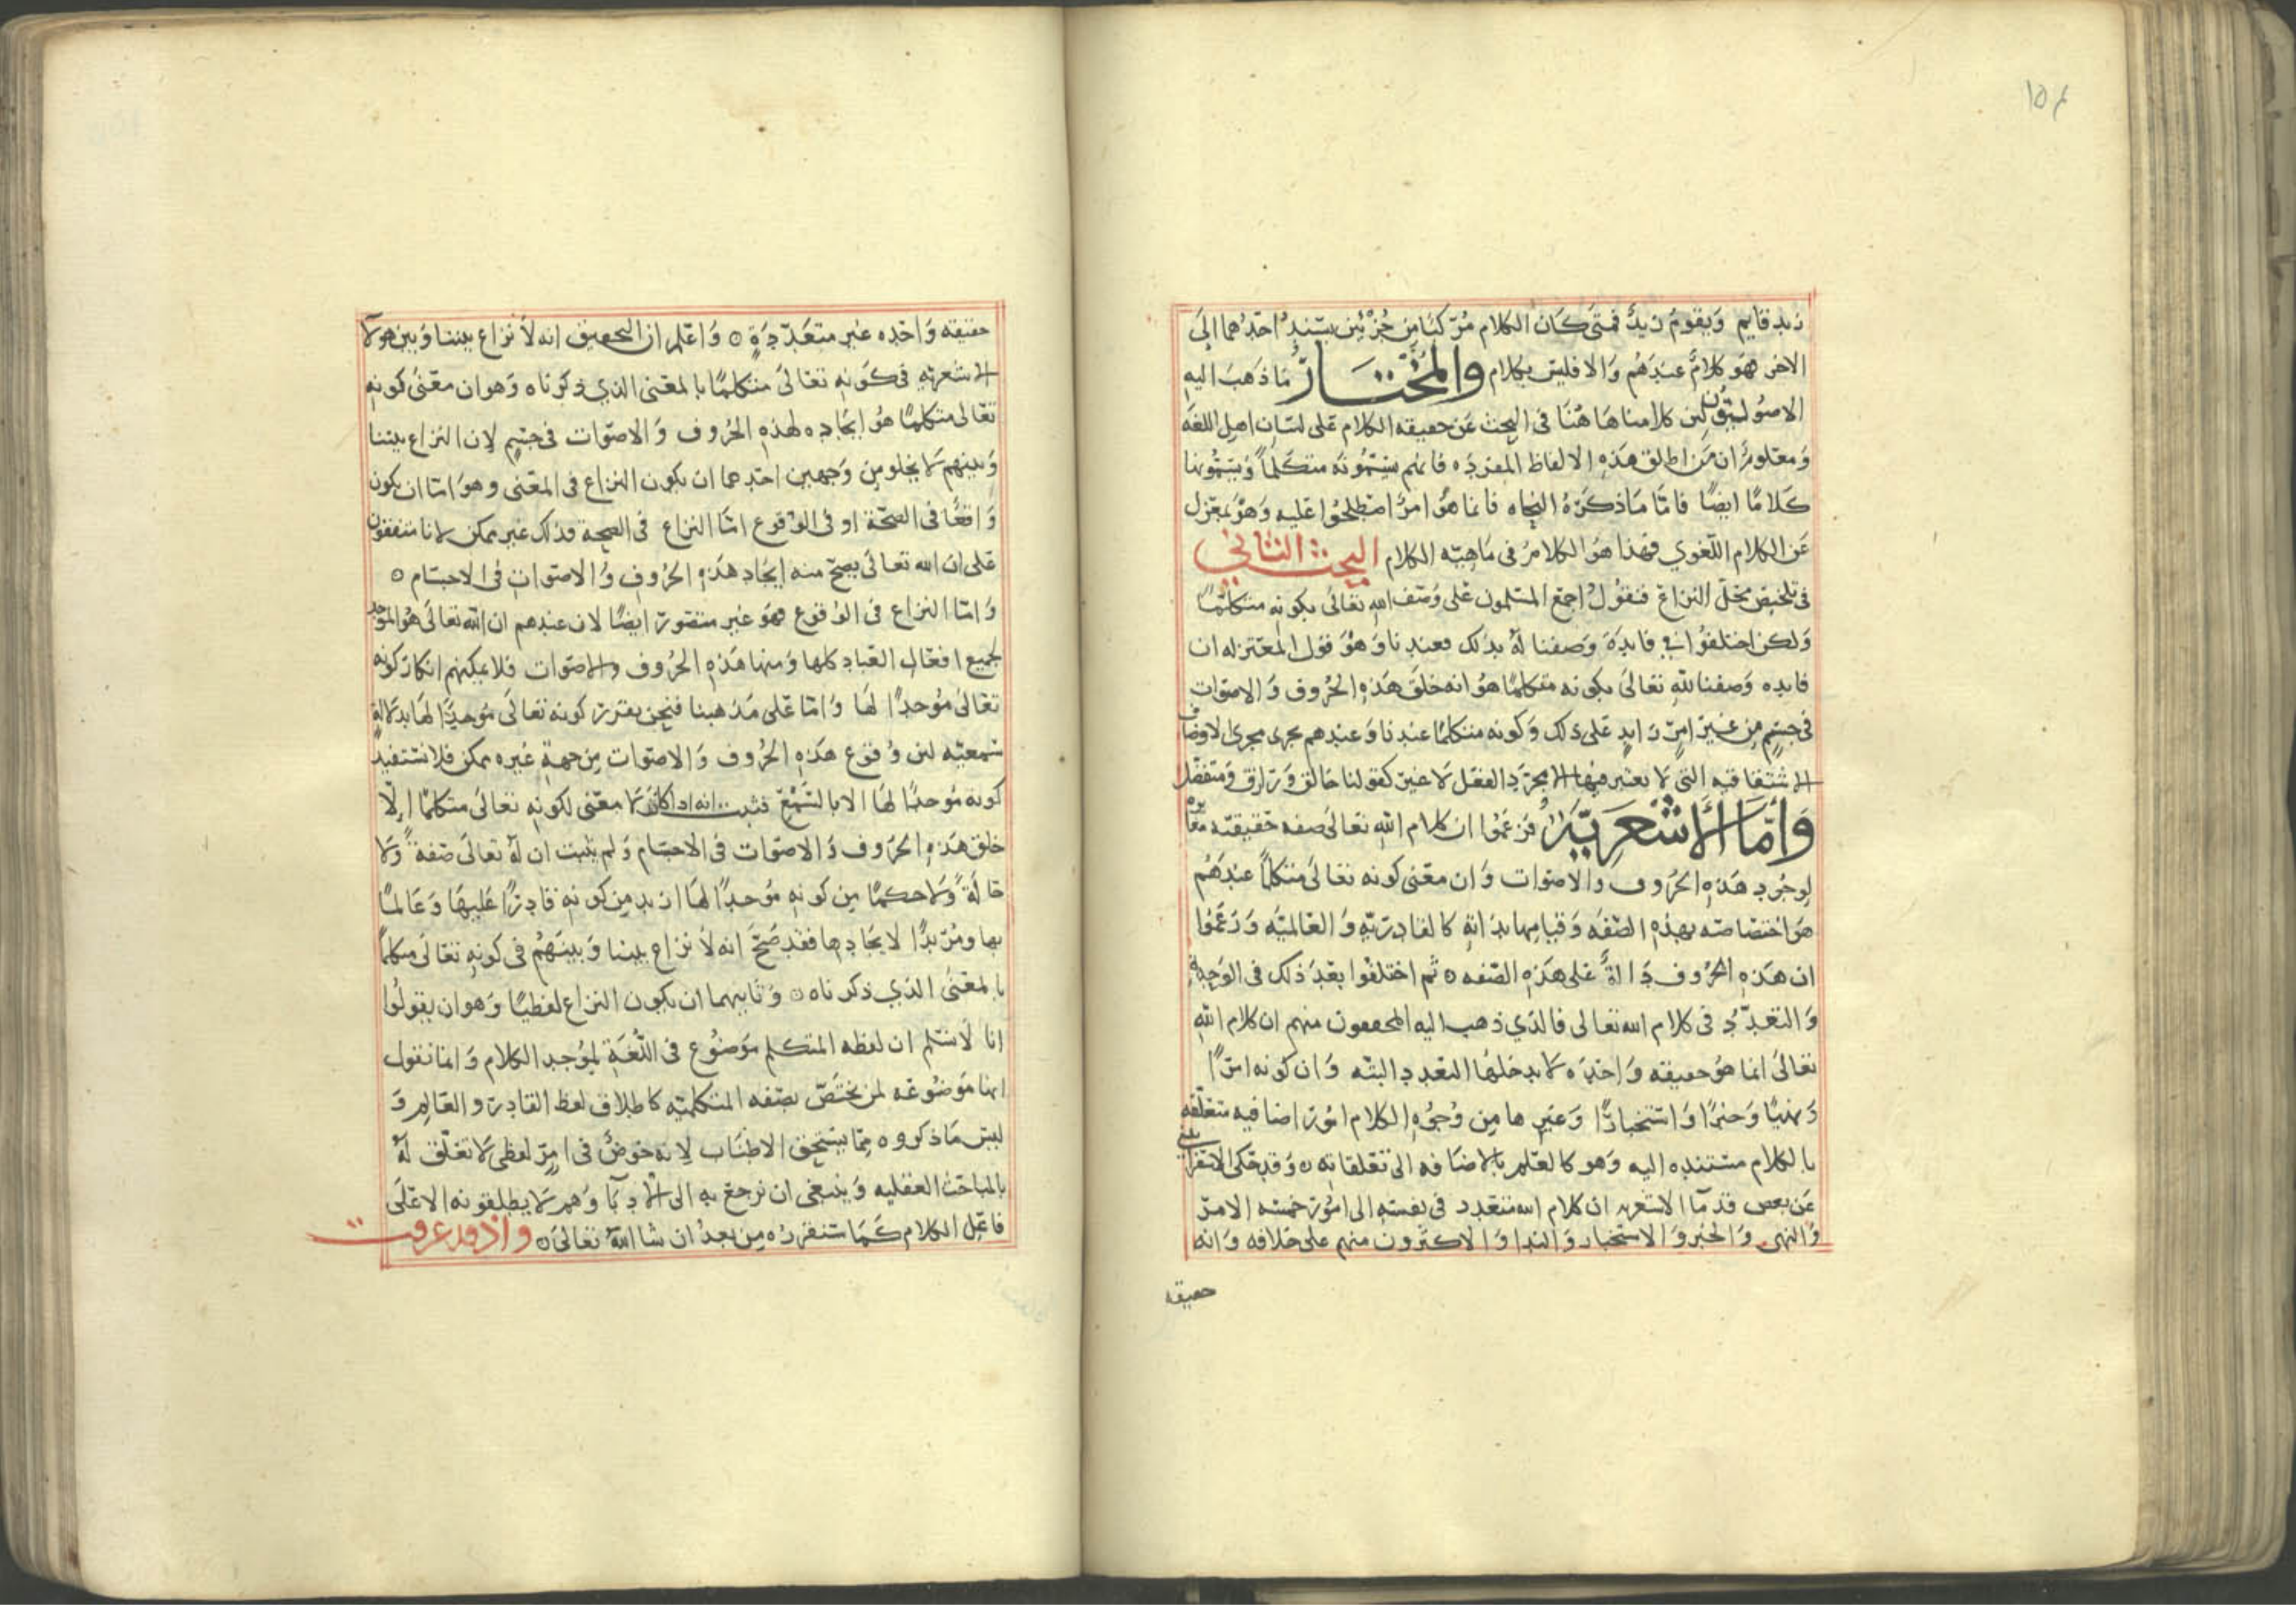 ١٥٤
زيد قايم وَيقومُ زيدٌ فمتى كَانَ الكلام مُرَكبًا مِن جُزْئين يستندُ احَدُهما إلىَ
الاخر فهوَ كلامٌ عندَهُم وَالا فليسَ بكلام وَالمُخْتَارُ مَا ذهَبَ اليهِ
الاصُوليّونَ لِئن كلامنا هَا هُنَا فى البحث عَن حقيقه الكلام عَلى لسَان اهلِ اللغَه
وَمعَلومٌ ان مَن اطلق هَذهِ الالفاظ المفردَه فانهم يُسَمّونَه متكلمًا وَيُسَمُّونها
كَلامًا ايضًا فامّا مَا ذكَرَهُ النحَاه فانما هوَُ امرٌ اصْطلحُوا عليه وَهوَ بمَعْزل
عَن الكلام اللّغوي فهذا هوَ الكلامُ فى مَاهيّه الكلام البحث الثاني
فى تلخيص محَلّ النزاع فنقوُلُ اجمعَ المسْلمون عَلى وَصَف الله تعَالىَ بكونهِ متكلّمًا
وَلكن اختلفوُا في فايدَة وَصفنا لهُ بذلك فعندنا وَهوَُ قوَل المعتزله ان
فايده وَصفنا للهِ تعَالىَ بكونه متكلمًا هوُ انه خلقَ هَذهِ الحُرُوف وَالاصوَات
فى جسْمٍ مِن غَير امرٍ زايدٍ عَلى ذلك وَكونه متكلمًا عندنا وَعندهم يجرى مجرى الاوصَاف
الاشتقاقيه التي لا يعتبر فيها الا مجرّد الفعل لا غيرَ كقولنا خَالق وَرَازق وَمتفَضّل
وَأَمَّا الأَشْعَرِيَّةُ فزعَمُوُا ان كلام اللهِ تعَالىَ صفه حَقيقيّه مغَايرَه
لوجُود هَذهِ الحرُوف وَالاصوَات وَان معَنى كونه تعَالىَ متكلمًا عندَهُم
هوَ اختصَاصُه بهذهِ الصّفَه وَقيامِها بذاتهِ كالقادِريّهِ وَالعَالميّه وَزعَمُوا
ان هَذهِ الحرُوف دَالةٌ عَلى هَذهِ الصّفه ٥ ثم اختلفوُا بعَدَ ذلك فى الوَحدةِ
وَالتعَدّدُ فى كلام الله تعَالى فالذي ذهب اليهِ المحققون منهم ان كلام اللهِ
تعَالىَ انما هوُ حقيقه وَاحدَه لا يدخلُها التعَدد البتّه وَان كونه امرًا
وَنهيًا وَخبرًا وَاستخبارًا وَغَيرِها مِن وُجوُهِ الكلام امُورٌ اضافيه متعَلّقه
بالكلام مستنده اليهِ وَهو كالعَلم بالاضَافه الى تعَلقاته ٥ وَقد حَكى الاسفرَاييني
عَن بعَض قدمَآ الاشعريه ان كلام الله متعَدد فى نفسهِ الى امُور خمسَه الامرَ
وَالنهى وَالخبر وَالاستخبار وَالندا وَالاكثرون منهم على خلافه وَانه
حقيقه
حقيقه وَاحده غير متعَدّدَةٍ ٥ وَاعَلم ان التحقيق انه لاَ نزاعَ بيننا وَبين هولآ
الاشعريّهِ فى كوَنهِ تعَالىَ متكلمًا بالمعَنى الذي ذكرناه وَهو ان معَنى كونهِ
تعَالى متكلمًا هوُ ايجَاده لهذهِ الحُرُوف وَالاصوَات فى جسْمٍ لِان النزاع بيننا
وَبينهم لا يخلو مِن وَجهين احدهما ان يكون النزاع فى المعَنى وهوَ امّا ان يكون
وَاقعًا فى الصّحّة او فى الوُقوع امَّا النزاع فى الصحة فذلك غير ممكن لانا متفقون
عَلى ان الله تعَالىَ يصحّ منه ايجَاد هَذهِ الحُرُوفِ وُالاصوَاتِ في الاجسَام ٥
وَامّا النزاع فى الوُقوع فهوَ غير متصَوّر ايضًا لان عندهم ان الله تعَالىَ هوُ الموجد
لجميع افعَال العبَاد كلها وَمنها هَذهِ الحرُوف والاصوَات فلا يمكنهم انكارَ كونه
تعَالىَ مُوُجدًا لهَا وَامّا عَلى مَذهبنا فنحن نقرر كونه تعَالىَ مُوجدًا لهَا بدلالةٍ
سَمعيّه لئن وُقوع هَذهِ الحُرُوف وَالاصوَات مِن جهةِ غَيره ممكن فلا نستفيدُ
كونه مُوجدًا لهَا الا بالسَّمْع فثبت انه اذا كان لا معَنى لكونهِ تعَالىَ متكلمًا اِلّا
خلق هَذهِ الحرُوف وَالاصوَات فى الاجسَام وَلم يثبت ان لهُ تعَالىَ صَفهً وَلا
حَالَةً وَلا حكمًا مِن كونهِ مُوجدًا لهَا ازيد مِن كونهِ قادِرًا عَليهَا وَعَالمًا
بها ومُريدًا لايجَادِها فقد صَحَّ انه لاَ نزاع بيننا وَبينَهُم فى كونهِ تعَالىَ متكلمًا
بالمعَنى الذي ذكرناه ٥ وَثانيهما ان يكون النزاع لفظيًا وَهو ان يقولُوا
انا لاَ نسَلم ان لفظه المتكلم موَضوُع فى اللُّغَةِ لموُجد الكلام وَانما نقول
انها موَضوُعَه لمن يختَصّ بصَفه المتكلميّهِ كاطلاق لفظ القادر والعَالِم وَ
ليسَ مَا ذكروه مِمّا يستحق الاطنَاب لِانه خَوضٌ فى امرٍ لفظى لا تعَلّق لهُ
بالمبَاحَث العَقليه وَينبغى ان نرجعَ بهِ الى الادبَآ وَهم لا يطلقونه الا عَلىَ
فاعَل الكلام كَمَا سَنقررُه مِن بعدُ ان شا اللهُ تعَالىَ ٥ واذ قد عرفت